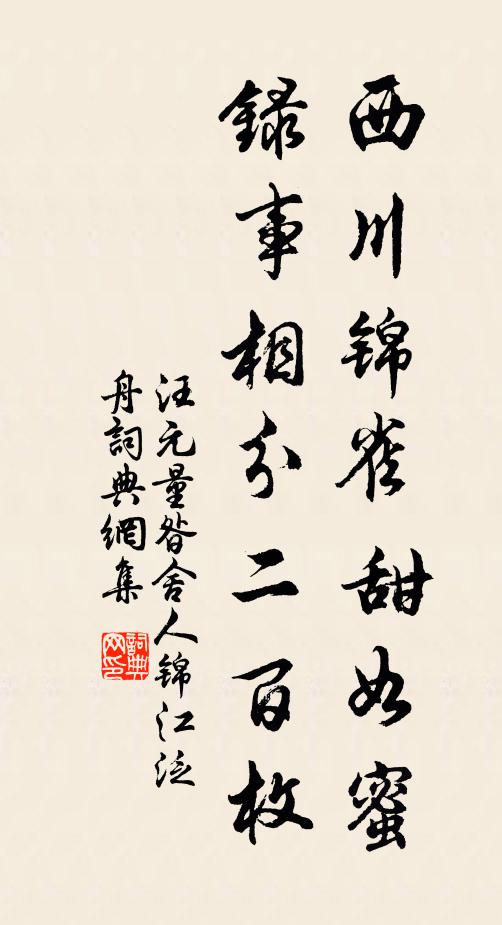 西川錦雀甜如蜜
録事相分二百枚
汪元量昝舍人錦江泛
舟詞典網集
詞典網印